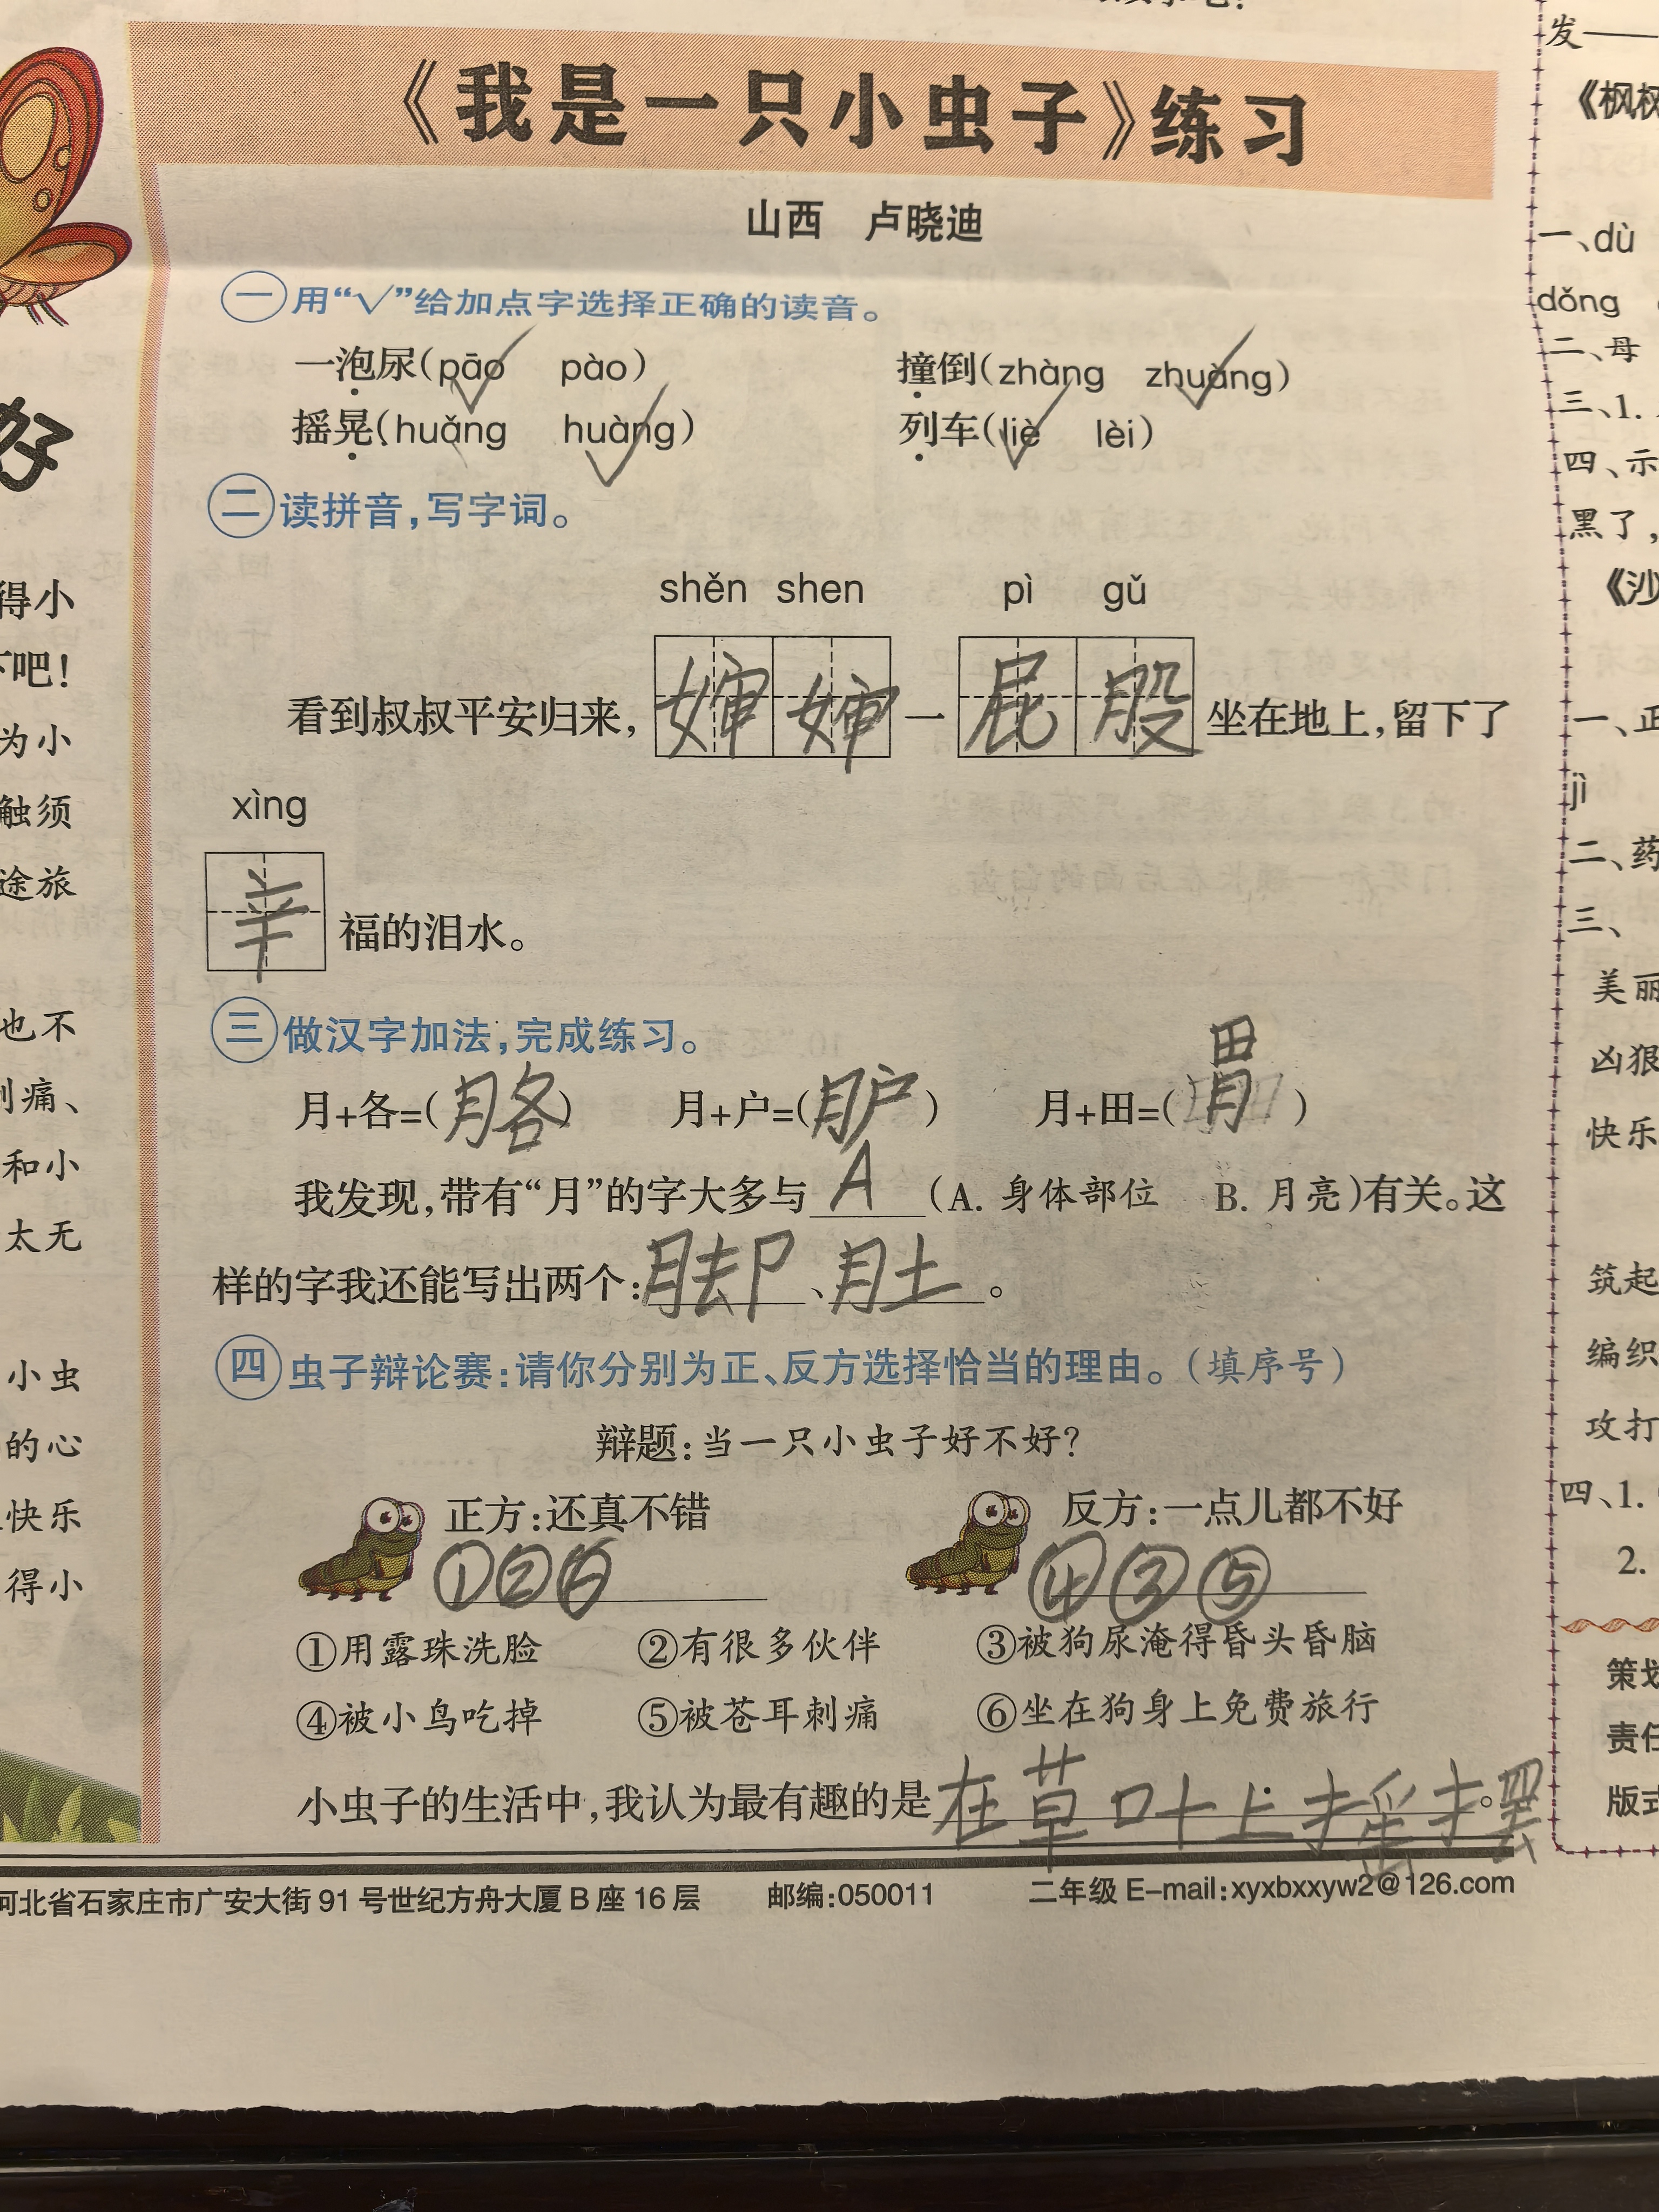 《我是一只小虫子》练习
山西 卢晓迪
一 用“√”给加点字选择正确的读音。
一泡尿(pāo√ pào) 撞倒(zhàng zhuàng√)
摇晃(huǎng huàng√) 列车(liè√ lèi)
二 读拼音,写字词。
shěn shen pì gǔ
看到叔叔平安归来,婶婶一屁股坐在地上,留下了
xìng
幸福的泪水。
三 做汉字加法,完成练习。
月+各=(胳) 月+户=(胪) 月+田=(胃)
我发现,带有“月”的字大多与A(A. 身体部位 B. 月亮)有关。这
样的字我还能写出两个:脚、肚。
四 虫子辩论赛:请你分别为正、反方选择恰当的理由。(填序号)
辩题:当一只小虫子好不好?
正方:还真不错 反方:一点儿都不好
①②⑥ ④③⑤
①用露珠洗脸 ②有很多伙伴 ③被狗尿淹得昏头昏脑
④被小鸟吃掉 ⑤被苍耳刺痛 ⑥坐在狗身上免费旅行
小虫子的生活中,我认为最有趣的是在草叶上摇摆。
河北省石家庄市广安大街 91 号世纪方舟大厦 B 座 16 层 邮编:050011 二年级 E-mail:xyxbxxyw2@126.com
好
得小
下吧!
为小
触须
途旅
也不
刺痛、
和小
太无
小虫
的心
快乐
得小
发——
《枫
一、dù
dǒng
二、母
三、1.
四、示
黑了,
《沙
一、正
jì
二、药
三、
美丽
凶狠
快乐
筑起
编织
攻打
四、1.
2.
策划
责任
版式